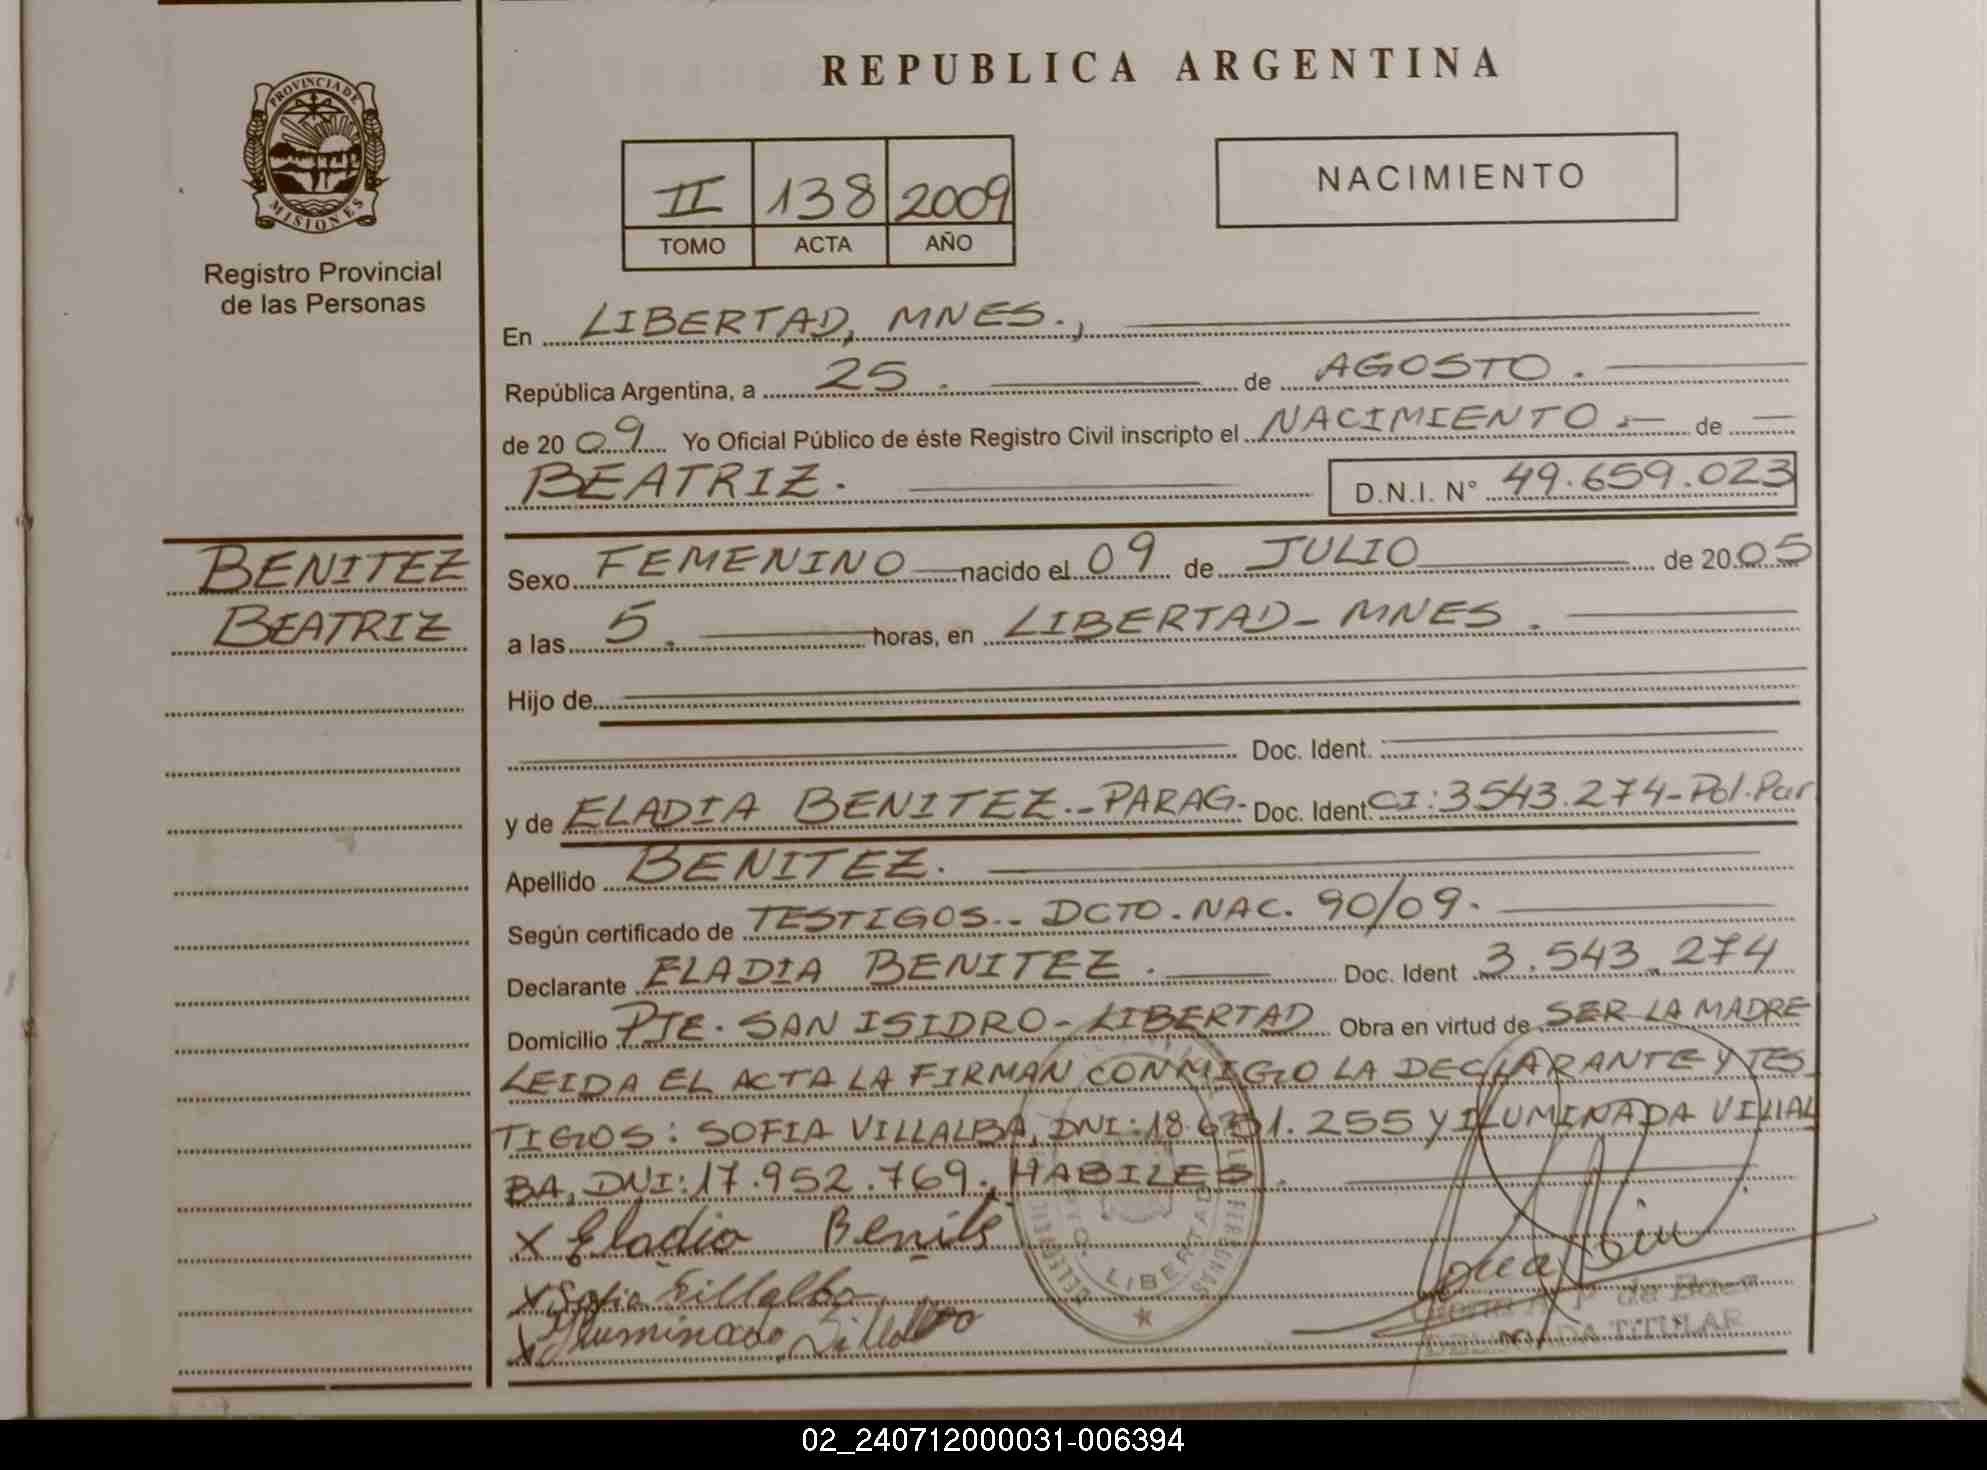 PROVINCIA DE
MISIONES
Registro Provincial
de las Personas
BENITEZ
BEATRIZ
REPUBLICA ARGENTINA
II 138 2009
TOMO ACTA AÑO
NACIMIENTO
En LIBERTAD, MNES.,
República Argentina, a 25. de AGOSTO.
de 20 09 Yo Oficial Público de éste Registro Civil inscripto el NACIMIENTO.- de —
BEATRIZ. D.N.I. N° 49.659.023
Sexo FEMENINO nacido el 09 de JULIO de 20 05
a las 5. horas, en LIBERTAD - MNES.
Hijo de
Doc. Ident.
y de ELADIA BENITEZ.-PARAG- Doc. Ident. CI: 3543.274-Pol.Par
Apellido BENITEZ.
Según certificado de TESTIGOS.- DCTO. NAC. 90/09.
Declarante ELADIA BENITEZ. Doc. Ident 3.543.274
Domicilio PJE. SAN ISIDRO - LIBERTAD Obra en virtud de SER LA MADRE
LEIDA EL ACTA LA FIRMAN CONMIGO LA DECLARANTE Y TES
TIGOS: SOFIA VILLALBA, DNI: Y ILUMINADA VILLAL
BA, DNI: 17.952.769., HABILES.
X Eladia Benite
X Sofia Villalba
X Iluminada Villalba
LIBERTAD
de Baer
TITULAR
02_240712000031-006394